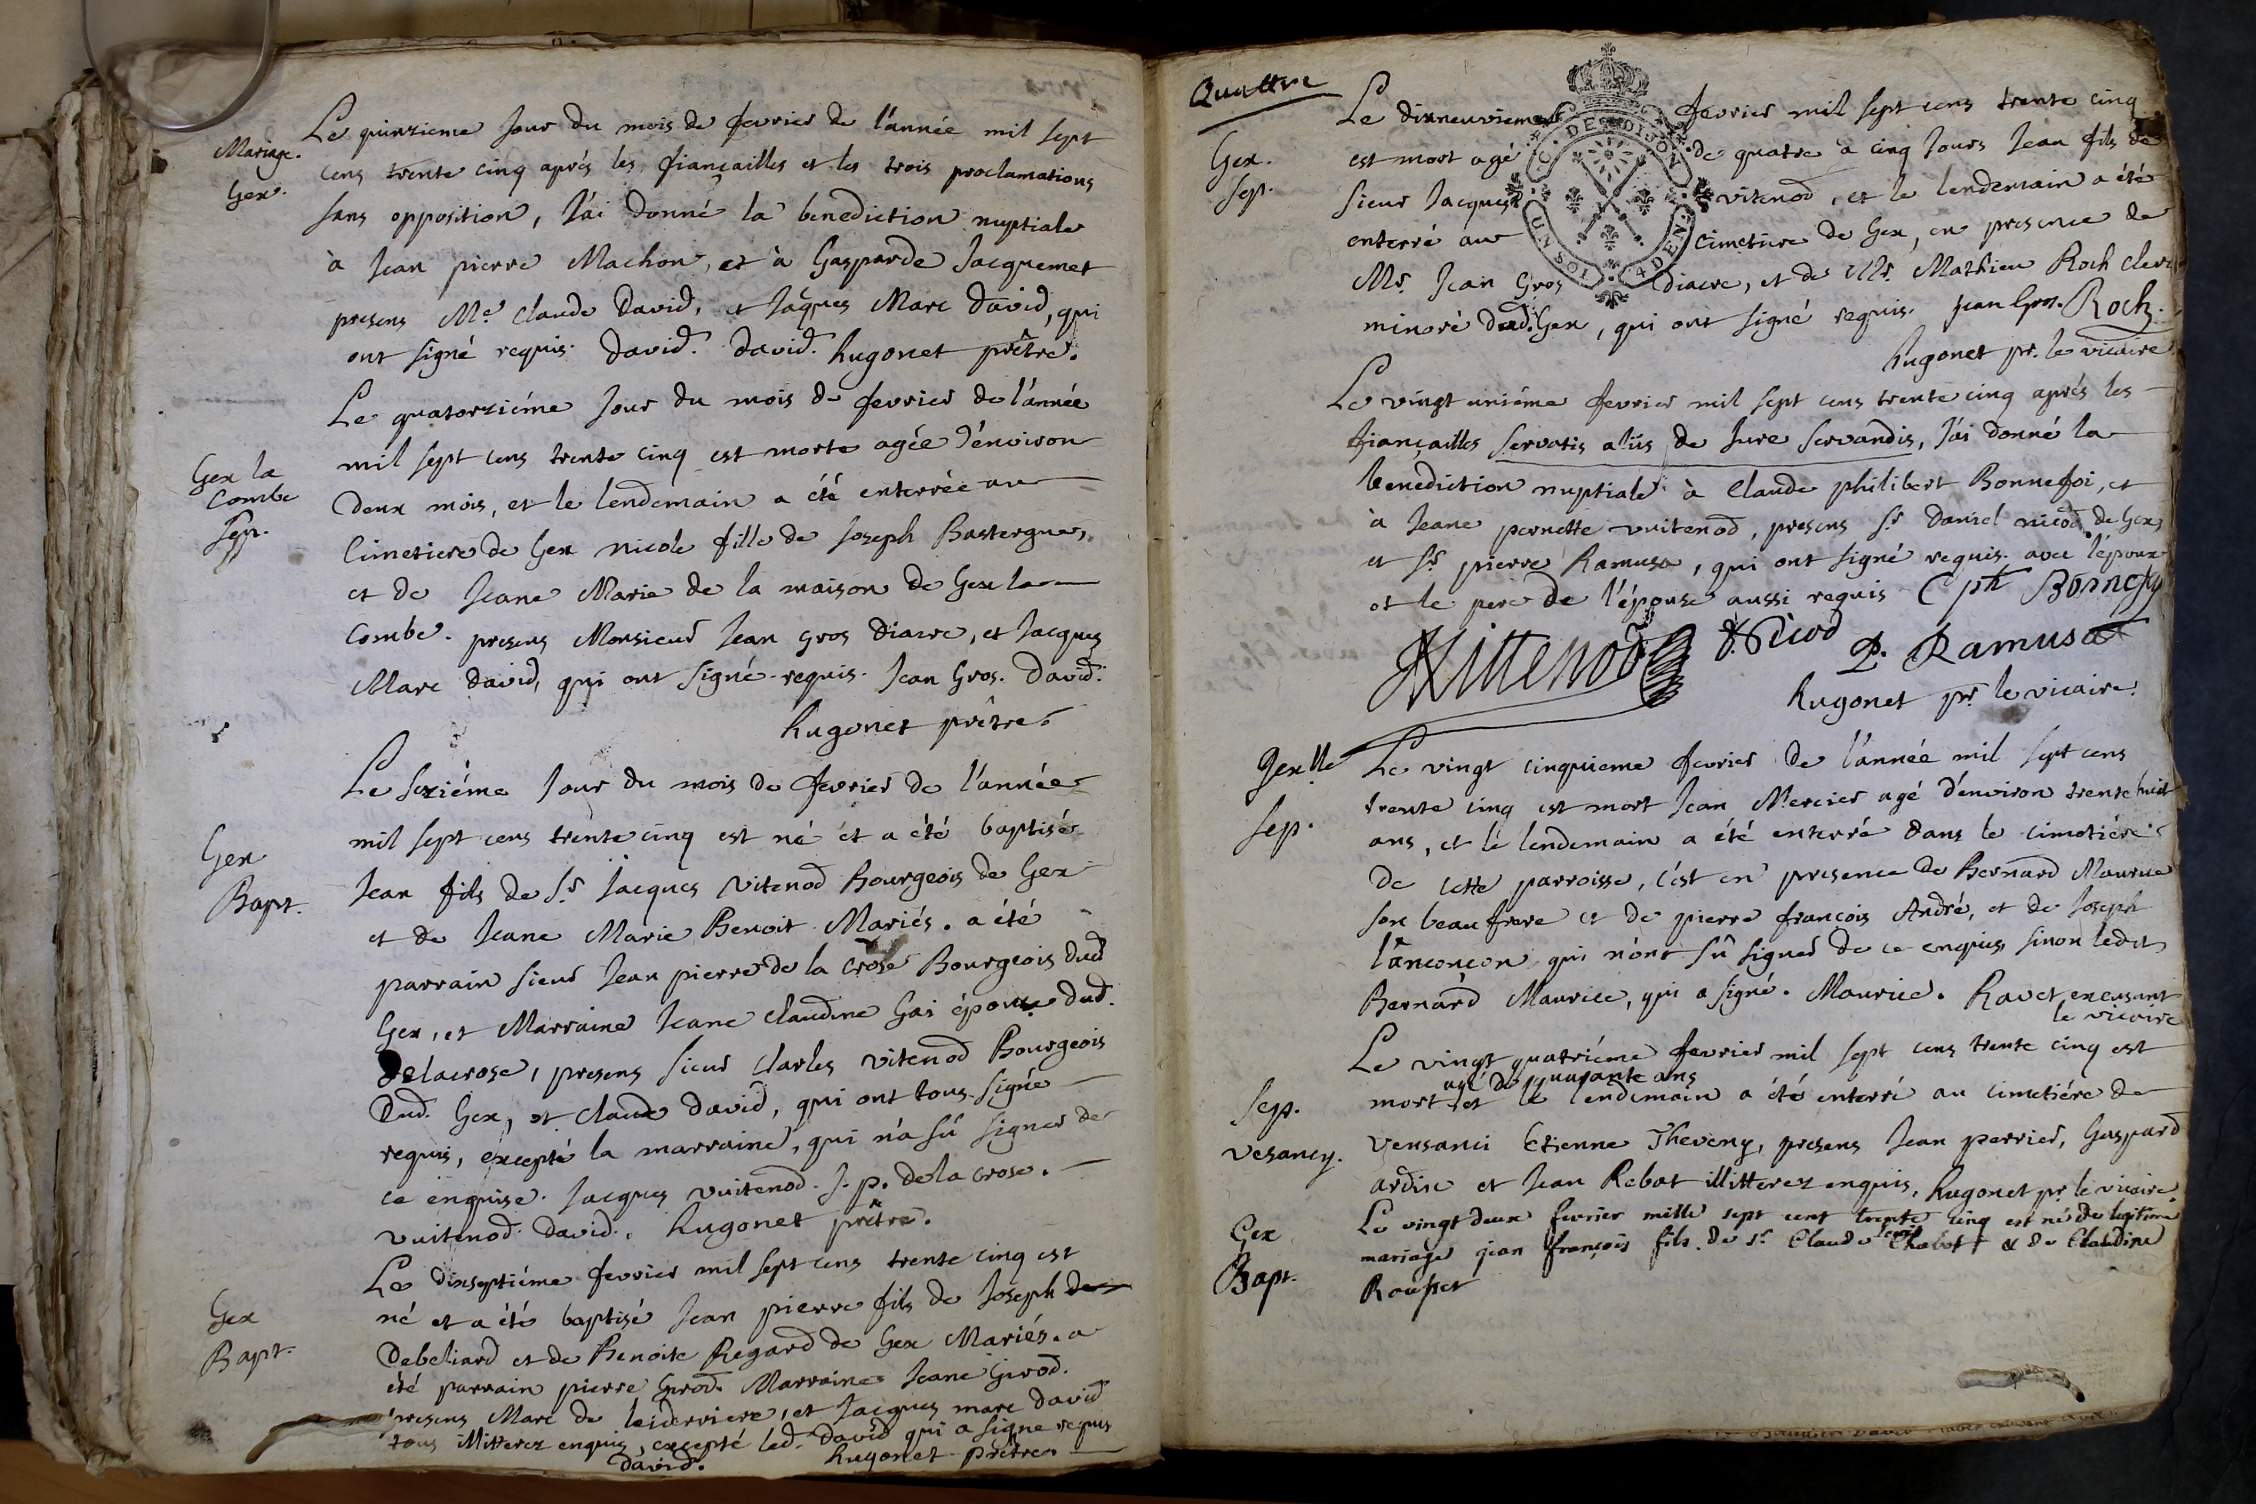 Mariage.
Gex.
Le quinzieme Jour du mois de fevrier de l'année mil sept
cens trente cinq aprés les fiançailles et les trois proclamations
sans opposition, J'ai donné la benediction nuptiale
à Jean pierre Machon, et à Gasparde Jacquemet
presens Me Claude David, et Jaques Marc David, qui
ont signé requis. David. David. hugonet prêtre.
Gex la
Combe
Sep.
Le quatorziéme Jour du mois de fevrier de l'année
mil sept cens trente cinq est morte agée d'environ
deux mois, et le lendemain a été enterrée au
Cimetiere de Gex nicole fille de Joseph Bastergue,
et de Jeane Marie de la maison de Gex la
Combe. presens Monsieur Jean gros diacre, et Jacques
Marc David, qui ont signé requis. Jean Gros. David.
hugonet prêtre.
Gex
Bapt.
Le seziéme Jour du mois de fevrier de l'année
mil sept cens trente cinq est né et a été baptisé
Jean fils de Sr. Jacques Vitenod Bourgeois de Gex
et de Jeane Marie Benoit Mariés. a été
parrain sieur Jean pierre de la Crose Bourgeois dud
Gex, et Marraine Jeane Claudine Gai épouse dud.
Delacrose, presens sieur Charles vitenod Bourgeois
dud. Gex, et Claude David, qui ont tous signée
requis, éxcepté la marraine, qui n'a sû signer de
ce enquise. Jacques vuitenod. J. p. de la crose.
vuitenod. david. hugonet prêtre.
Gex
Bapt.
Le dixseptiéme fevrier mil sept cens trente cinq est
né et a été baptisé Jean pierre fils de Joseph de
Debeliard et de Benoite Regard de Gex Mariés. a
été parrain pierre Girod. Marraine Jeane Girod.
presens Marc de leiderriere, et Jacques marc david
tous illitterez enquis, excepté led. David qui a signe requis
david. hugonet prêtre.
Quattre
Gex.
Sep.
Le dixneuviéme fevrier mil sept cens trente cinq
est mort agé de quatre a cinq Jours Jean fils de
sieur Jacques vitenod, et le lendemain a été
enterré au Cimetiere de Gex, en presence de
Mr. Jean Gros diacre, et de Mr. Mathieu Roch clerc
minoré dud. Gex, qui ont signé requis. Jean Gros. Roch.
hugonet pr. le vicaire
G. DE DIJON
UN SOL 4 DEN.
Le vingt uniéme fevrier mil sept cens trente cinq aprés les
fiançailles servatis aliis de Jure servandis, J'ai donné la
benediction nuptiale à Claude philibert Bonnefoi, et
à Jeane pernette vuitenod, presens Sr. Daniel nicod de Gex,
et Sr. pierre Ramusa, qui ont signé requis. avec l'époux
et le pere de l'épouse aussi requis C ph Bonnefoy
Vittenod D. Nicod P. Ramusat
hugonet pr le vicaire.
Gex lle
Sep.
Le vingt cinquieme fevrier de l'année mil sept cens
trente cinq est mort Jean Mercier agé d'environ trente huit
ans, et le lendemain a été enterré dans le cimetiére
de cette parroisse, c'est en presence de Bernard Maurice
son beau frere et de pierre francois André, et de Joseph
lançonçon qui n'ont sû signer de ce enquis sinon ledit
Bernard Maurice, qui a signé. Maurice. Ravet excusant
le vicaire
Sep.
Vesancy.
Le vingt quatriéme fevrier mil sept cens trente cinq est
agé de quarante ans
mort et le lendemain a été enterré au cimetiére de
Vensanci Etienne Theveny, presens Jean perrier, Gaspard
ardin et Jean Rebat illitterez enquis, hugonet pr. le vicaire.
Gex
Bapt.
Le vingt deux fevrier mille sept cent trente cinq est né de legitime
mariage jean françois fils de sr. Claude Chabot & de Claudine
Rousset